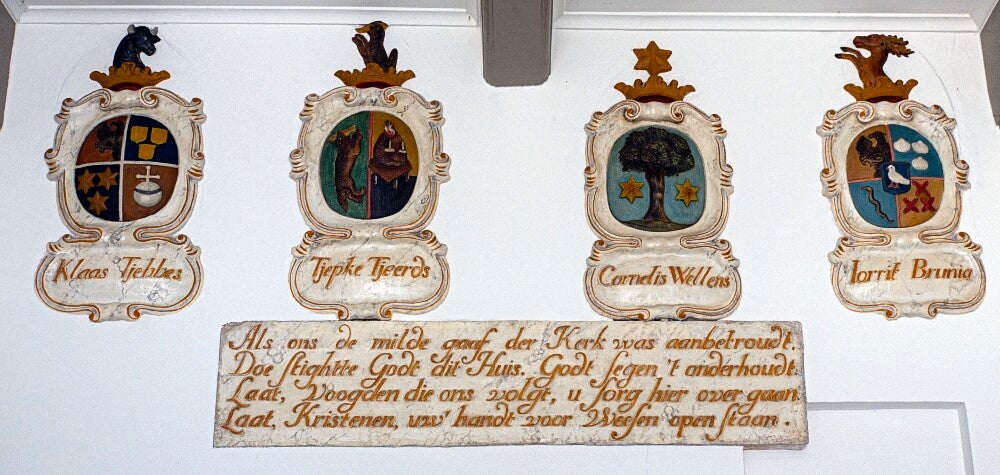 Klaas Tjebbes
Tjepke Tjeerds
Cornelis Wellens
Iorrit Brunia
Als ons de milde gaaf der Kerk was aanbetroudt.
Doe stightte Godt dit Huis. Godt segen 't onderhoudt.
Laat, Voogden die ons volgt, u sorg hier over gaan.
Laat, Kristenen, uw' handt voor Weesen open staan.